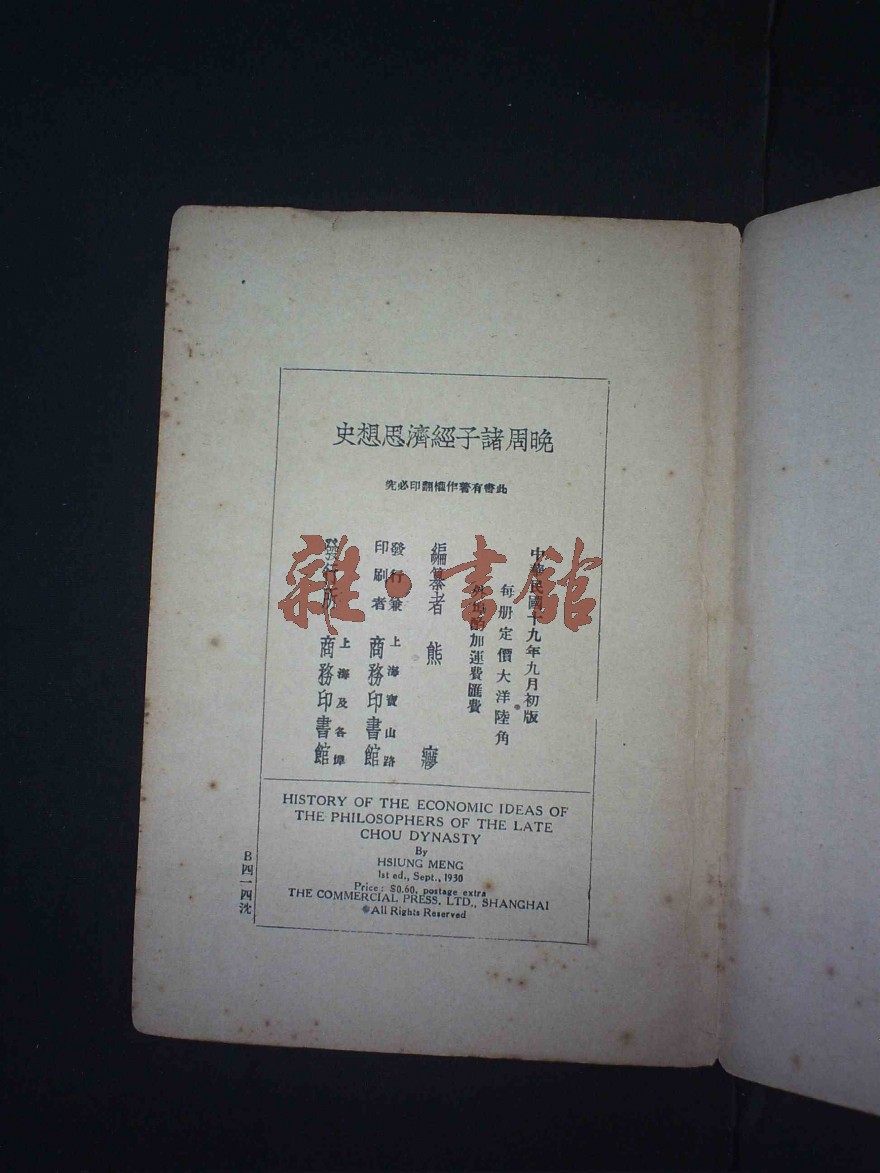 晚周諸子經濟思想史
此書有著作權翻印必究
中華民國十九年九月初版
每册定價大洋陸角
外埠酌加運費匯費
編纂者 熊 㝱
發行兼印刷者 上海寶山路 商務印書館
發行所 上海及各埠 商務印書館
HISTORY OF THE ECONOMIC IDEAS OF
THE PHILOSOPHERS OF THE LATE
CHOU DYNASTY
By
HSIUNG MENG
1st ed., Sept., 1930
Price: $0.60, postage extra
THE COMMERCIAL PRESS, LTD., SHANGHAI
All Rights Reserved
B四一四沈
雜·書館